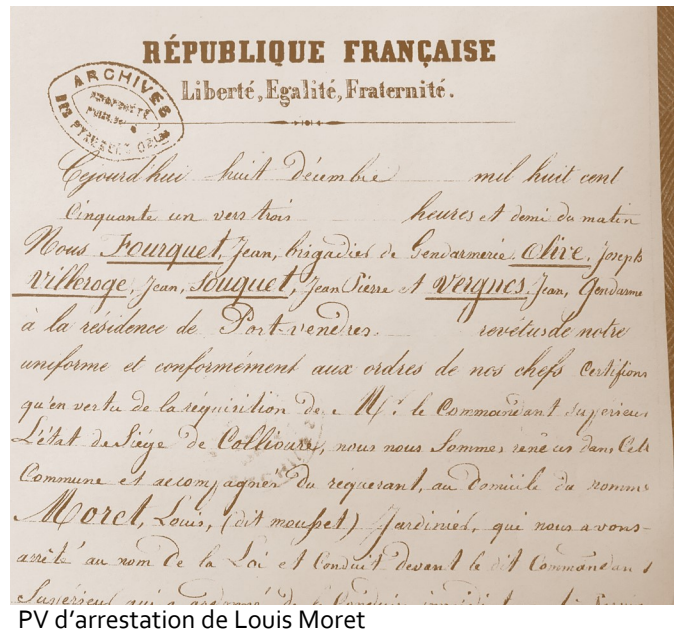 RÉPUBLIQUE FRANÇAISE
Liberté, Egalité, Fraternité.
ARCHIVES
PROPRIÉTÉ
PUBLIQUE
DES PYRÉNÉES
Cejourd'hui huit Décembre mil huit cent
Cinquante un vers trois heures et demi du matin
Nous Fourquet, Jean, brigadier de Gendarmerie, Olive, Joseph
Villeroge, Jean, Souquet, Jean Pierre et Vergnes, Jean, Gendarme
à la résidence de Port-vendres. revetus de notre
uniforme et conformément aux ordres de nos chefs Certifions
qu'en vertu de la réquisition de Mr. le Commandant Supérieur
L'état de Siége de Collioure, nous nous Sommes rendus dans Cette
Commune et accompagner du requerant, au Domicile du nommé
Moret, Louis, (dit moufset) Jardinier, qui nous avons
arrêté au nom De la Loi et Conduit devant le dit Commandant
Supérieur qui a ordonné de le Conduire
PV d'arrestation de Louis Moret